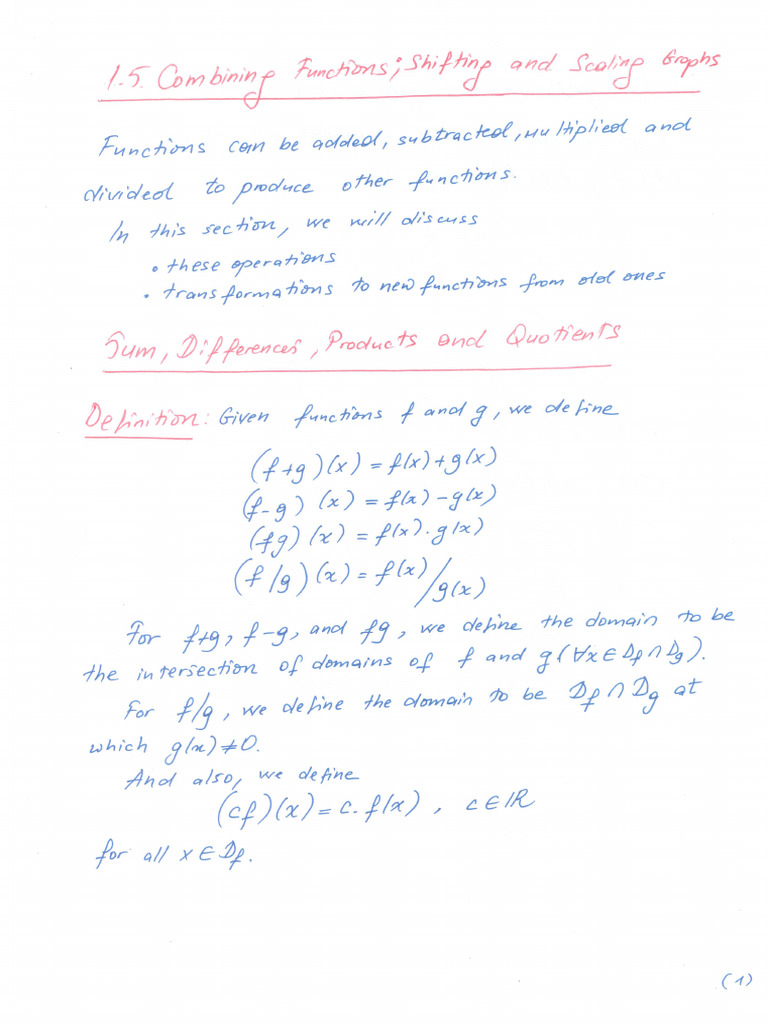 1.5. Combining Functions; Shifting and Scaling Graphs
Functions can be added, subtracted, multiplied and
divided to produce other functions.
In this section, we will discuss
• these operations
• transformations to new functions from old ones
Sum, Differences, Products and Quotients
Definition: Given functions f and g, we define
(f+g)(x) = f(x)+g(x)
(f-g) (x) = f(x) -g(x)
(fg) (x) = f(x). g(x)
(f/g)(x) = f(x)/g(x)
For f+g, f-g, and fg, we define the domain to be
the intersection of domains of f and g (∀x∈Df∩Dg).
For f/g, we define the domain to be Df∩Dg at
which g(x)≠0.
And also, we define
(cf)(x) = c. f(x) , c∈IR
for all x∈Df.
(1)